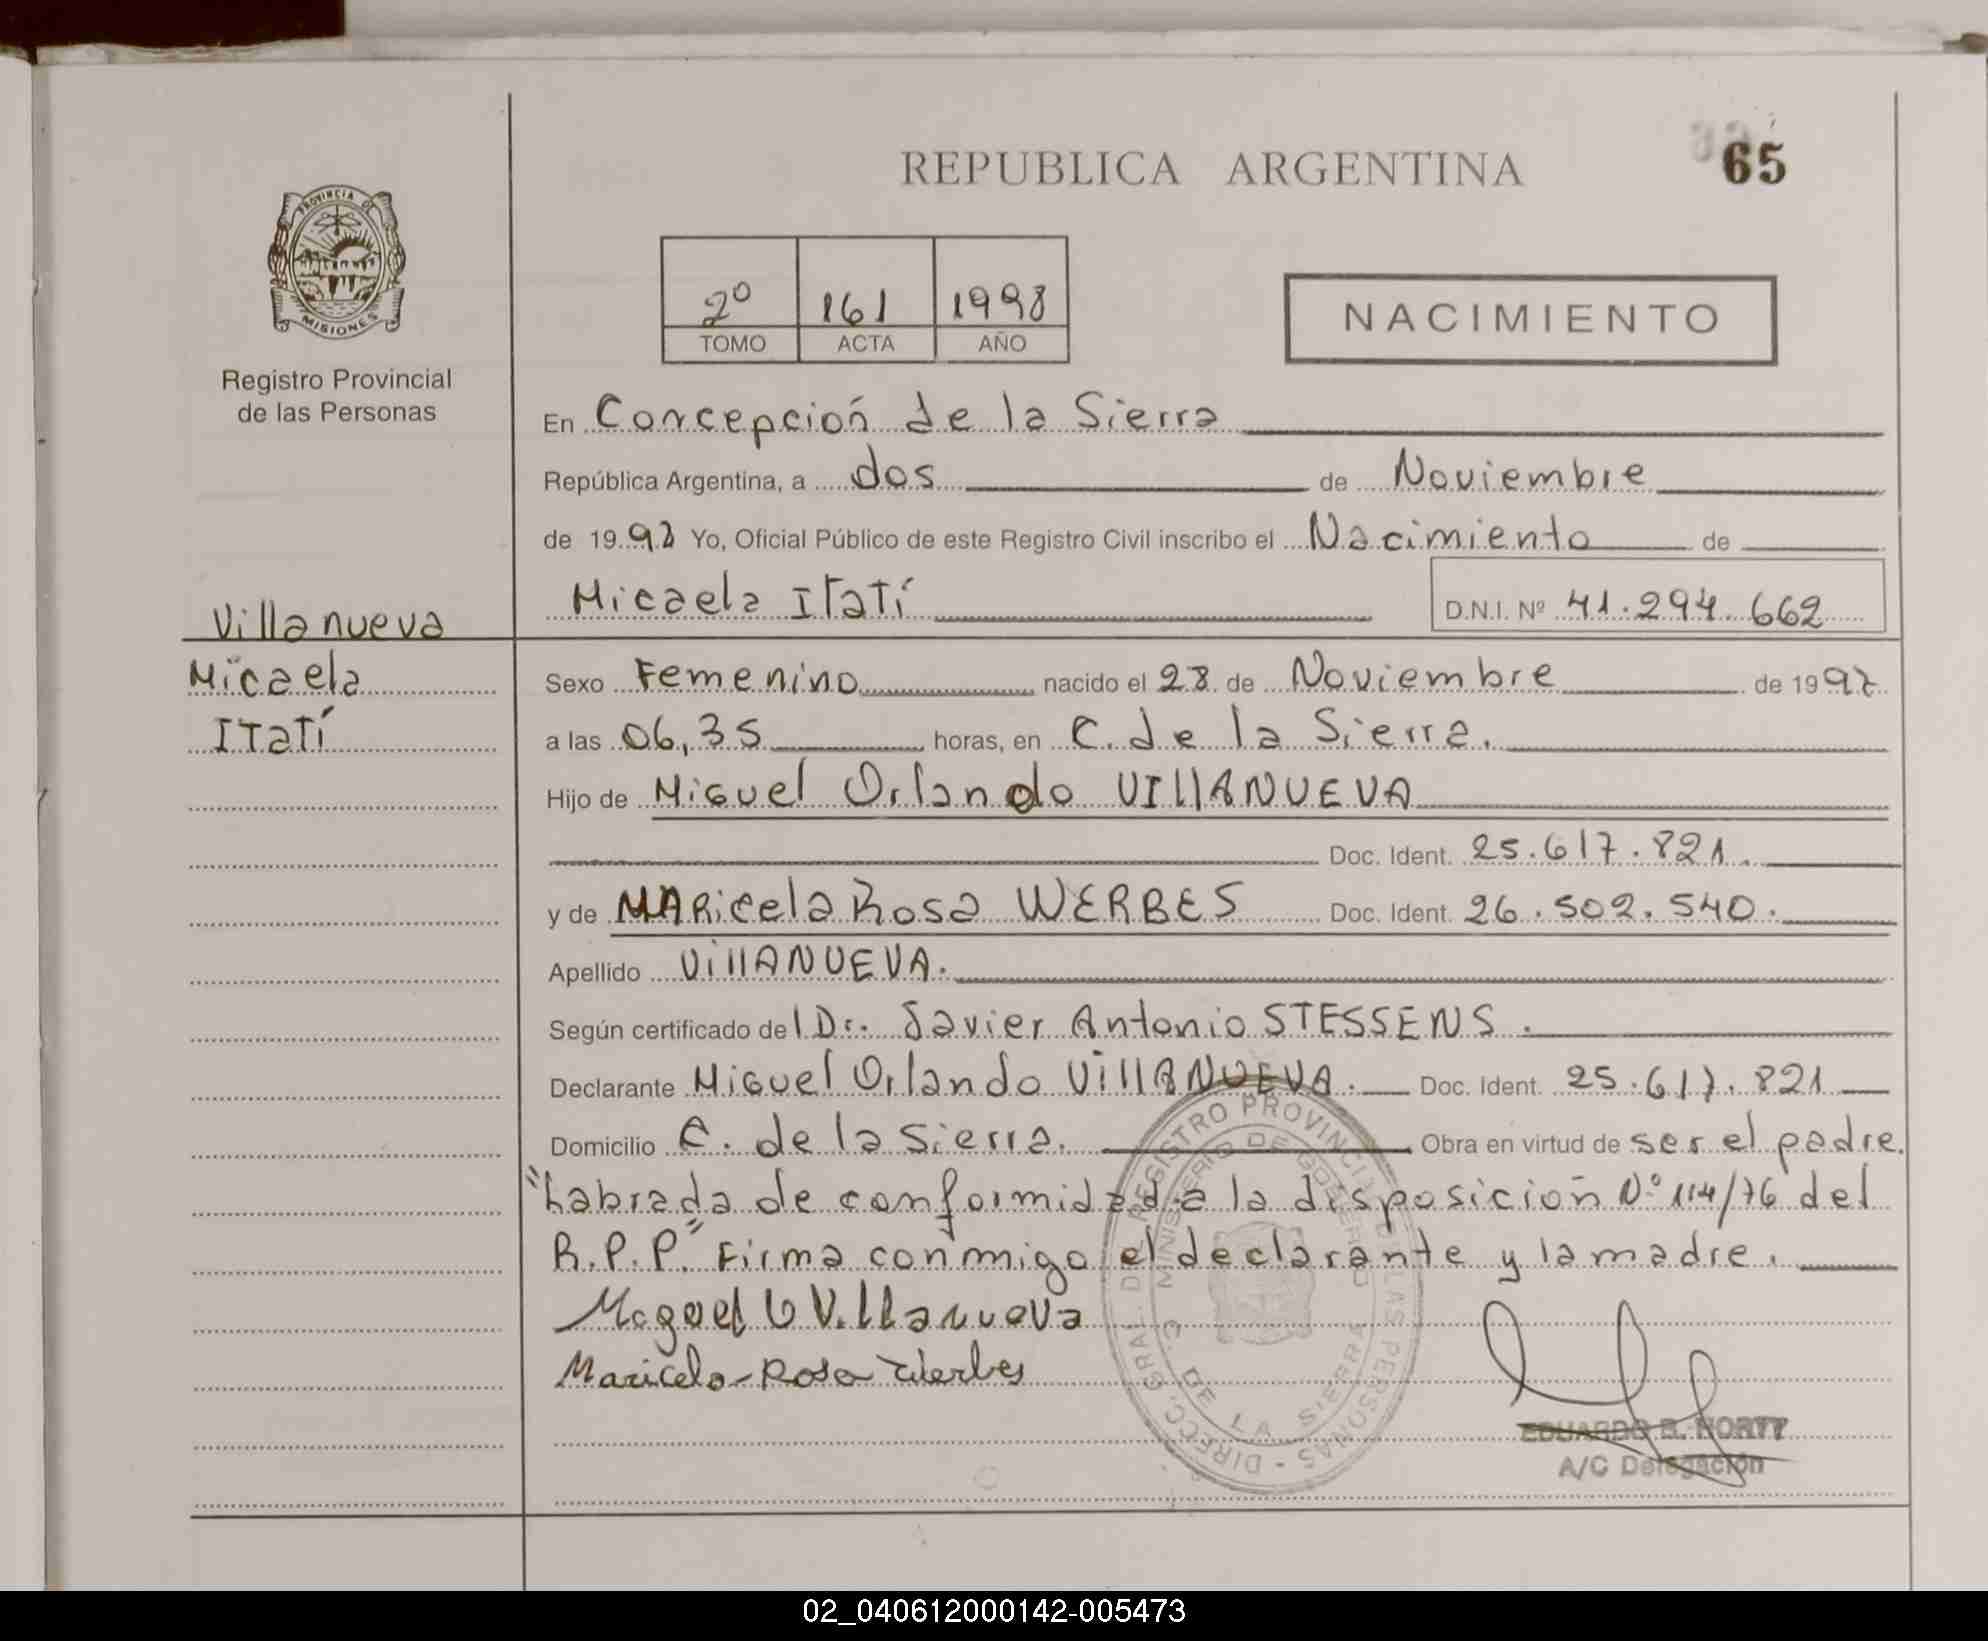 REPUBLICA ARGENTINA
65
PROVINCIA DE
MISIONES
Registro Provincial
de las Personas
2º 161 1998
TOMO ACTA AÑO
NACIMIENTO
En Concepción de la Sierra
República Argentina, a dos de Noviembre
de 19 98 Yo, Oficial Público de este Registro Civil inscribo el Nacimiento de
Micaela Itatí D.N.I. Nº 41.294.662
Villanueva
Micaela
Itatí
Sexo Femenino nacido el 28 de Noviembre de 19
a las 06,35 horas, en C. de la Sierra.
Hijo de Miguel Orlando VILLANUEVA
Doc. Ident. 25.617.821.
y de MARicela Rosa WERBES Doc. Ident. 26.502.540.
Apellido VillANUEVA.
Según certificado del Dr. Javier Antonio STESSENS.
Declarante Miguel Orlando VillANUEVA. Doc. Ident. 25.617.821
Domicilio C. de la Sierra. Obra en virtud de ser el padre.
"Labrada de conformidad a la disposición Nº 114/76 del
R.P.P." Firma conmigo el declarante y la madre.
Miguel O Villanueva
Maricela Rosa Werbes
DIRECC. GRAL. DEL REGISTRO PROVINCIAL DE LAS PERSONAS
MINISTERIO DE GOBIERNO
C. DE LA SIERRA
EDUARDO B. HORTT
A/C Delegación
02_040612000142-005473